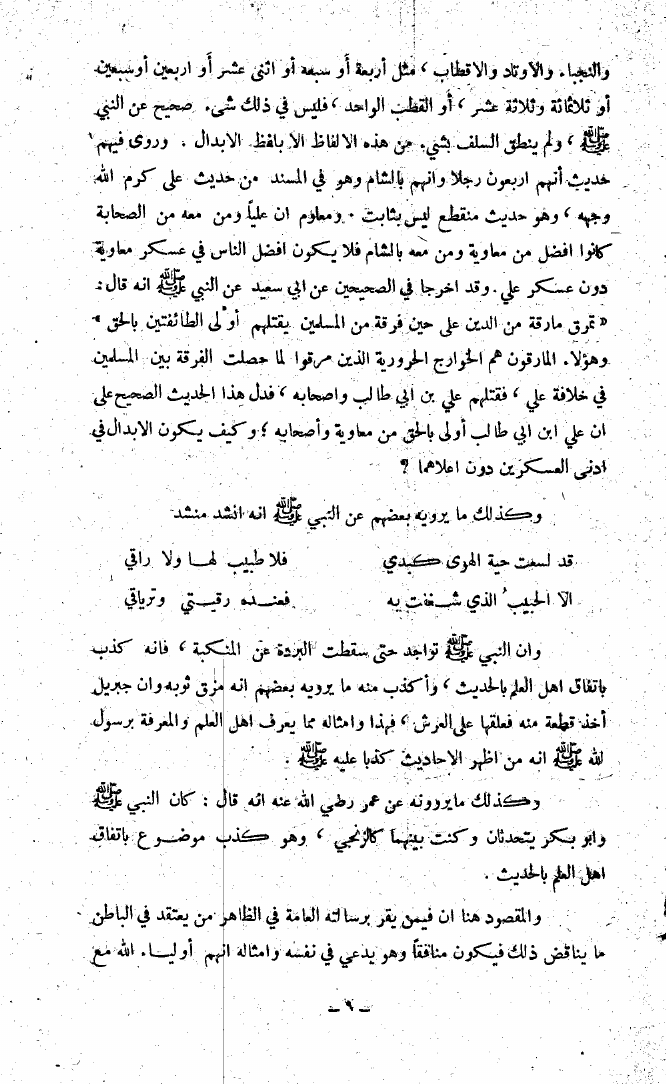 والنجباء والأوتاد والاقطاب ، مثل أربعة أو سبعة أو اثنى عشر أو اربعين أو سبعين
أو ثلاثمائة وثلاثة عشر ، أو القطب الواحد ، فليس في ذلك شيء صحيح عن النبي
ﷺ ، ولم ينطق السلف بشيء من هذه الالفاظ الا بلفظ الابدال . وروى فيهم
حديث أنهم اربعون رجلا وانهم بالشام وهو في المسند من حديث على كرم الله
وجهه ، وهو حديث منقطع ليس بثابت . ومعلوم ان علياً ومن معه من الصحابة
كانوا افضل من معاوية ومن معه بالشام فلا يكون افضل الناس في عسكر معاوية
دون عسكر علي . وقد اخرجا في الصحيحين عن ابي سعيد عن النبي ﷺ انه قال :
« تمرق مارقة من الدين على حين فرقة من المسلمين يقتلهم أولى الطائفتين بالحق »
وهؤلاء المارقون هم الخوارج الحرورية الذين مرقوا لما حصلت الفرقة بين المسلمين
في خلافة علي ، فقتلهم علي بن ابي طالب واصحابه ، فدل هذا الحديث الصحيح على
ان علي ابن ابي طالب أولى بالحق من معاوية وأصحابه ؛ وكيف يكون الابدال في
ادنى العسكرين دون اعلاهما ؟
وكذلك ما يرويه بعضهم عن النبي ﷺ انه انشد منشد
قد لسعت حية الهوى كبدي فلا طبيب لها ولا راقي
الا الحبيب الذي شغفت به فعنده رقيتي وترياقي
وان النبي ﷺ تواجد حتى سقطت البردة عن المنكبة ، فانه كذب
باتفاق اهل العلم بالحديث ، وأكذب منه ما يرويه بعضهم انه مزق ثوبه وان جبريل
أخذ قطعة منه فعلقها على العرش ، فهذا وامثاله مما يعرف اهل العلم والمعرفة برسول
لله ﷺ انه من اظهر الاحاديث كذبا عليه ﷺ .
وكذلك ما يروونه عن عمر رضي الله عنه انه قال : كان النبي ﷺ
وابو بكر يتحدثان وكنت بينهما كالزنجي ، وهو كذب موضوع باتفاق
اهل العلم بالحديث .
والمقصود هنا ان فيمن يقر برسالته العامة في الظاهر من يعتقد في الباطن
ما يناقض ذلك فيكون منافقاً وهو يدعي في نفسه وامثاله انهم أولياء الله مع
– ٩ –